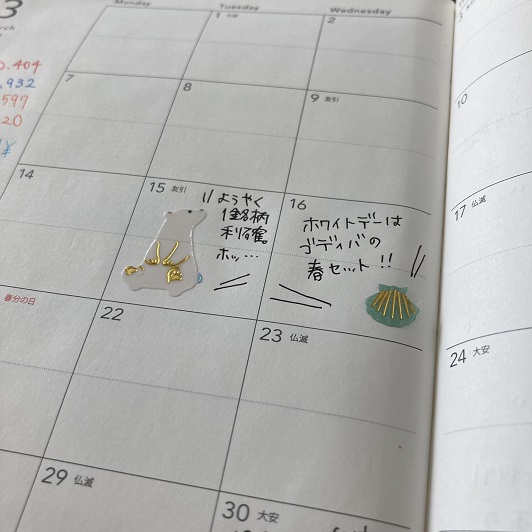 3
Monday
Tuesday
Wednesday
1 大安
2
.404
,932
597
20
7
8
9 友引
10
14
15 友引
ようやく
1銘柄
利確。
ホッ…
16
ホワイトデーは
ゴディバの
春セット!!
17 仏滅
春分の日
22
23 仏滅
24 大安
29 仏滅
30 大安